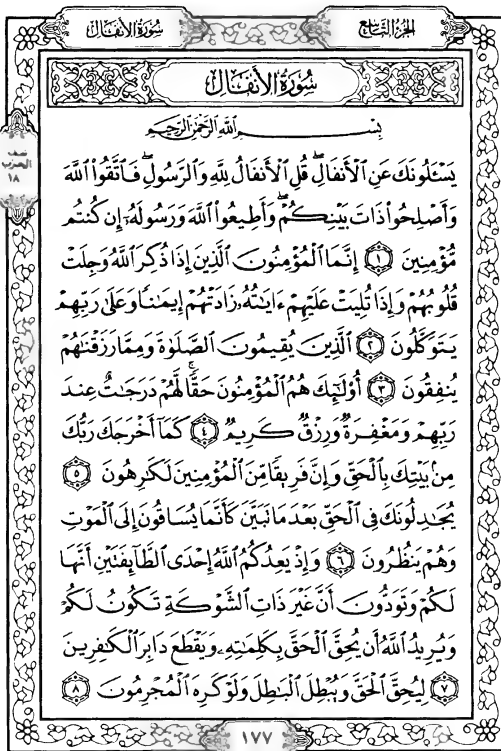 الجزء التاسع
سورة الأنفال
سُورَةُ الأَنفَال
بِسْمِ اللَّهِ الرَّحْمَٰنِ الرَّحِيمِ
نصف
الحزب
١٨
يَسْـَٔلُونَكَ عَنِ ٱلْأَنفَالِ ۖ قُلِ ٱلْأَنفَالُ لِلَّهِ وَٱلرَّسُولِ ۖ فَٱتَّقُوا۟ ٱللَّهَ
وَأَصْلِحُوا۟ ذَاتَ بَيْنِكُمْ ۖ وَأَطِيعُوا۟ ٱللَّهَ وَرَسُولَهُۥٓ إِن كُنتُم
مُّؤْمِنِينَ ١ إِنَّمَا ٱلْمُؤْمِنُونَ ٱلَّذِينَ إِذَا ذُكِرَ ٱللَّهُ وَجِلَتْ
قُلُوبُهُمْ وَإِذَا تُلِيَتْ عَلَيْهِمْ ءَايَٰتُهُۥ زَادَتْهُمْ إِيمَٰنًا وَعَلَىٰ رَبِّهِمْ
يَتَوَكَّلُونَ ٢ ٱلَّذِينَ يُقِيمُونَ ٱلصَّلَوٰةَ وَمِمَّا رَزَقْنَٰهُمْ
يُنفِقُونَ ٣ أُو۟لَٰٓئِكَ هُمُ ٱلْمُؤْمِنُونَ حَقًّا ۚ لَّهُمْ دَرَجَٰتٌ عِندَ
رَبِّهِمْ وَمَغْفِرَةٌ وَرِزْقٌ كَرِيمٌ ٤ كَمَآ أَخْرَجَكَ رَبُّكَ
مِنۢ بَيْتِكَ بِٱلْحَقِّ وَإِنَّ فَرِيقًا مِّنَ ٱلْمُؤْمِنِينَ لَكَٰرِهُونَ ٥
يُجَٰدِلُونَكَ فِى ٱلْحَقِّ بَعْدَ مَا تَبَيَّنَ كَأَنَّمَا يُسَاقُونَ إِلَى ٱلْمَوْتِ
وَهُمْ يَنظُرُونَ ٦ وَإِذْ يَعِدُكُمُ ٱللَّهُ إِحْدَى ٱلطَّآئِفَتَيْنِ أَنَّهَا
لَكُمْ وَتَوَدُّونَ أَنَّ غَيْرَ ذَاتِ ٱلشَّوْكَةِ تَكُونُ لَكُمْ
وَيُرِيدُ ٱللَّهُ أَن يُحِقَّ ٱلْحَقَّ بِكَلِمَٰتِهِۦ وَيَقْطَعَ دَابِرَ ٱلْكَٰفِرِينَ
٧ لِيُحِقَّ ٱلْحَقَّ وَيُبْطِلَ ٱلْبَٰطِلَ وَلَوْ كَرِهَ ٱلْمُجْرِمُونَ ٨
١٧٧